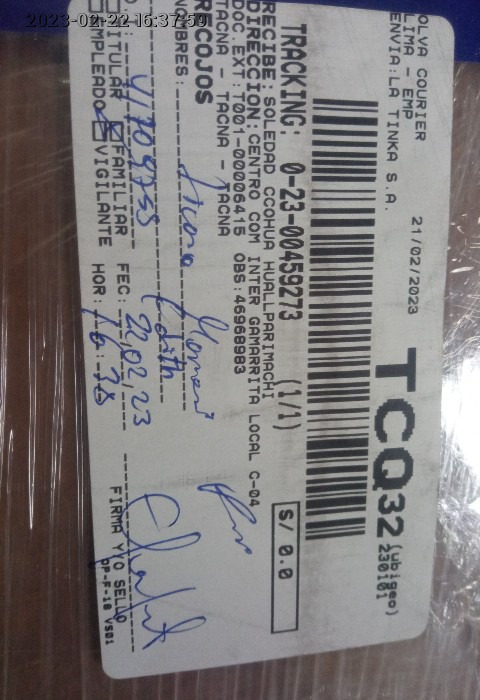 2023-02-22 16:37:59
OLVA COURIER
LIMA - EMP
ENVIA:LA TINKA S.A.
21/02/2023
TCQ32
(ubigeo)
230101
TRACKING: 0-23-00459273 (1/1)
S/ 0.0
RECIBE:SOLEDAD CCOHUA HUALLPARIMACHI
DIRECCION:CENTRO COM INTER GAMARRITA LOCAL C-04
DOC.EXT:T001-00006415 OBS:46968983
TACNA - TACNA - TACNA
RECOJOS
NOMBRES:
Edith
FEC: 22,02,23
TITULAR FAMILIAR
EMPLEADO VIGILANTE HOR: 16:38
FIRMA Y/O SELLO
OP-F-18 VS01